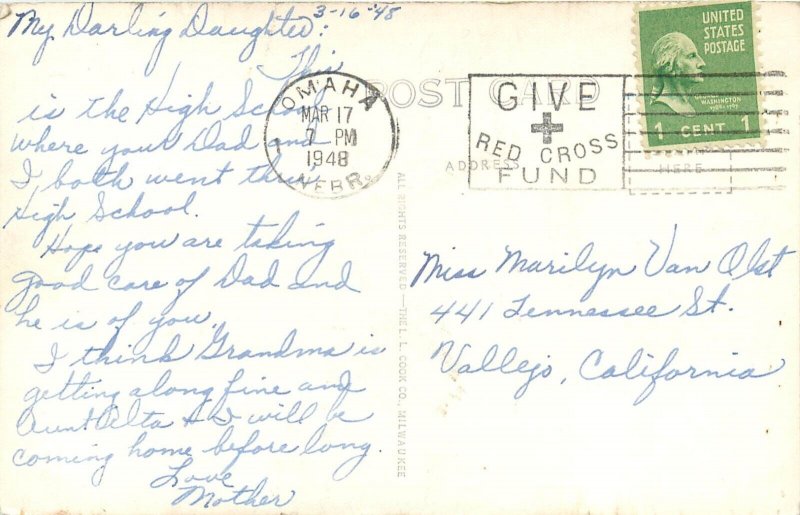 3-16-'48
My Darling Daughter:
This
is the High School
where your Dad and
I both went thru
High School.
Hope you are taking
good care of Dad and
he is of you.
I think Grandma is
getting along fine and
Aunt Alta & I will be
coming home before long.
Love
Mother
POST CARD
ADDRESS
HERE
OMAHA
MAR 17
7 PM
1948
NEBR.
GIVE
RED CROSS
FUND
UNITED
STATES
POSTAGE
WASHINGTON
1 CENT 1
ALL RIGHTS RESERVED — THE L. L. COOK CO., MILWAUKEE
Miss Marilyn Van Olst
441 Tennessee St.
Vallejo, California